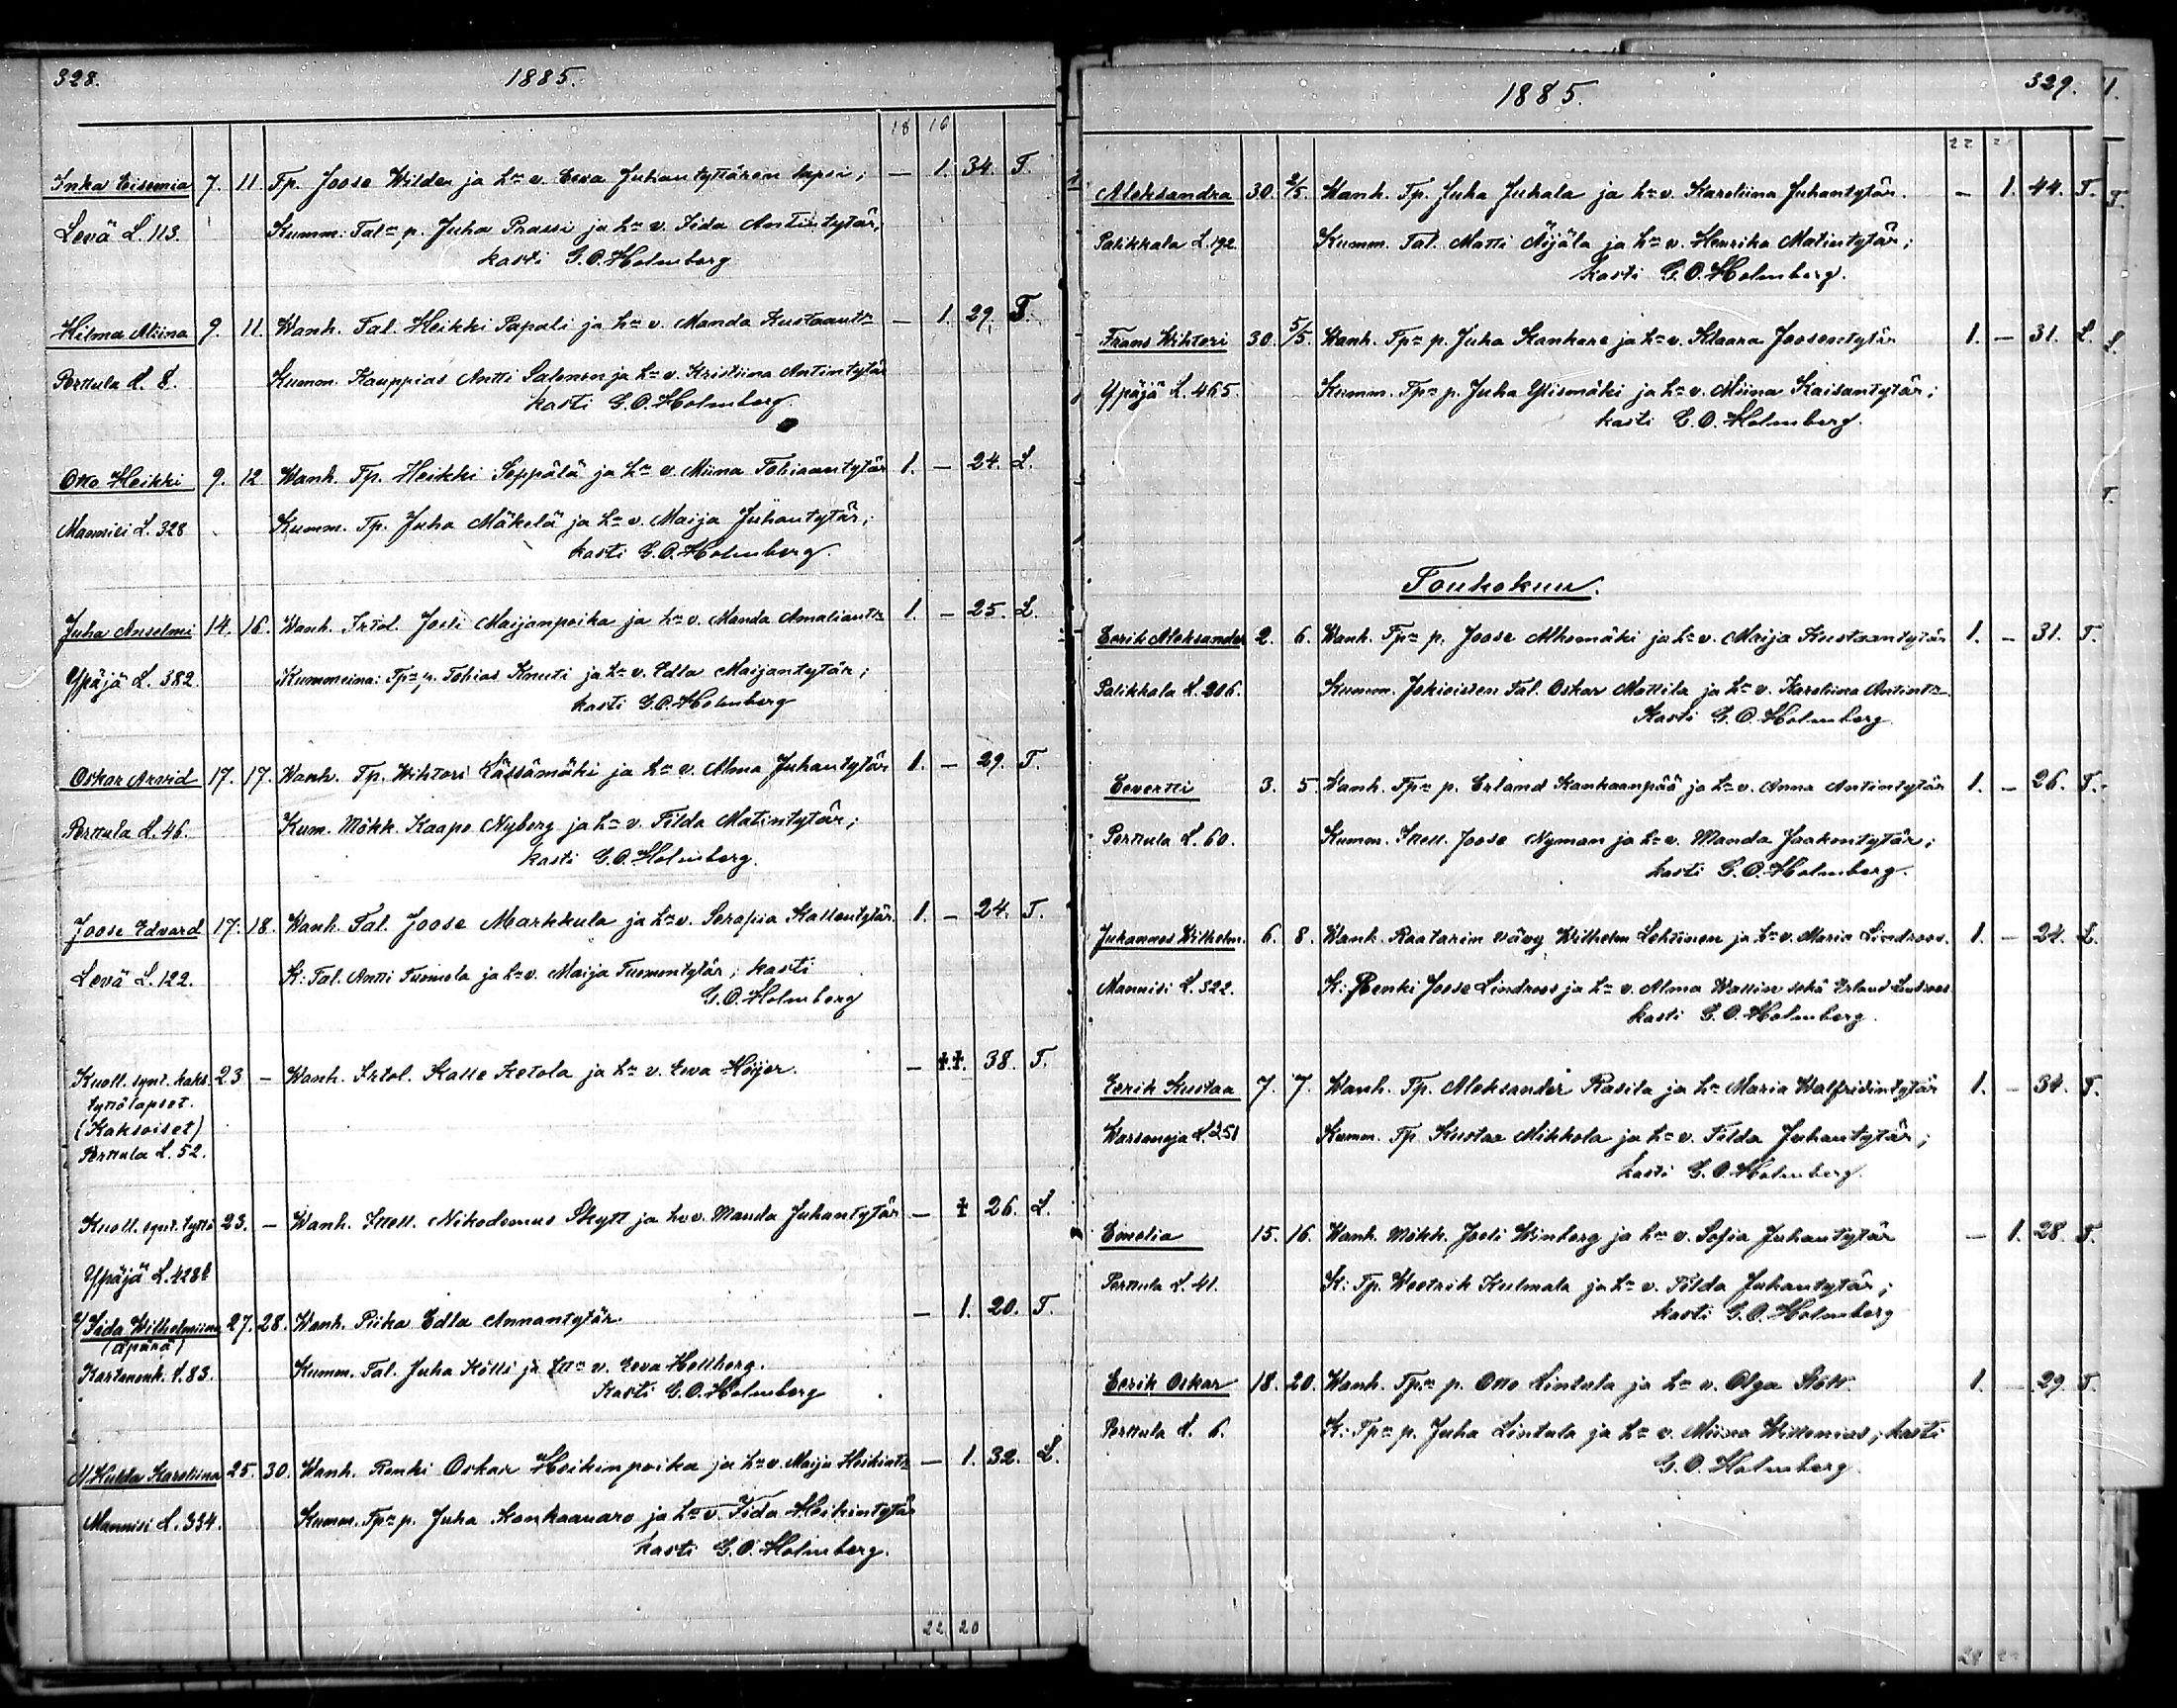 328.
1885.
18 16
Inka Eisemia 7. 11 Tp. Joose Wilder ja hra v. Eeva Juhantyttären lapsi; — 1. 34. T.
Levä L. 113. Kumm: Talra p. Juha Prassi ja hra v. Iida Antintytär,
kasti G.O.Holmberg
Hilma Miina 9. 11. Wanh. Tal. Heikki Papali ja hra v. Manda Kustaantr — 1. 29. T.
Perttula L. 8. Kumm. Kauppias Antti Salonen ja hra v. Kristiina Antintytär
kasti G.O.Holmberg.
Otto Heikki 9. 12 Wanh. Tp. Heikki Seppälä ja hra v. Miina Tobiaantytär 1. — 24. L.
Mannisi L. 328 Kumm. Tp. Juha Mäkelä ja hra v. Maija Juhantytär;
kasti G.O.Holmberg.
Juha Anselmi 14. 16. Wanh. Irtol. Joeli Maijanpoika ja hra v. Manda Amaliantr 1. — 25. L.
Ypäjä L. 382. Kummeina: Tpra p. Tobias Knuti ja hra v. Edla Maijantytär;
kasti G.O.Holmberg
Oskar Arvid 17. 17. Wanh. Tp. Wihtori Lässämäki ja hra v. Alma Juhantytär 1. — 29. T.
Perttula L. 46. Kum. Mökk. Kaapo Nyberg ja hra v. Tilda Matintytär;
kasti G.O.Holmberg.
Joose Edvard 17. 18. Wanh. Tal. Joose Markkula ja hra v. Serafia Kallentytär 1. — 24. T.
Levä L. 122. K: Tal. Antti Tuomola ja hra v. Maija Tuomontytär; kasti
G.O.Holmberg
Kuoll. synt. kaks 23 — Wanh. Irtol. Kalle Ketola ja hra v. Eeva Höijer. — ‡.‡. 38. T.
tyttölapset.
(Kaksoiset)
Perttula L. 52.
Kuoll. synt. tyttö 23. — Wanh. Ittell. Nikodemus Skytt ja hra v. Manda Juhantytär — ‡ 26. L.
Ypäjä L. 428b
Iida Wilhelmiina 27. 28. Wanh. Piika Edla Annantytär. — 1. 20. T.
(äpärä)
Kartanonk. L. 83. Kumm. Tal. Juha Kölli ja v. Eeva Hellberg.
Kasti G.O.Holmberg
Hulda Karoliina 25. 30. Wanh. Renki Oskar Heikinpoika ja hra v. Maija Heikintr — 1. 32. L.
Mannisi L. 334. Kumm. Tpra p. Juha Konkaanaro ja hra v. Iida Heikintytär
kasti G.O.Holmberg.
22 20
1885.
329.
22
Aleksandra 30. 2/5. Wanh. Tp. Juha Juhala ja hra v. Karoliina Juhantytär. — 1. 44. T.
Palikkala L. 192. Kumm. Tal. Matti Äijälä ja hra v. Henrika Matintytär;
kasti G.O.Holmberg.
Frans Wihtori 30. 5/5. Wanh. Tpra p. Juha Kanhare ja hra v. Klaara Joosentytär 1. — 31. L.
Ypäjä L. 465. Kumm. Tpra p. Juha Ylismäki ja hra v. Miina Kaisantytär;
kasti G.O.Holmberg.
Toukokuu.
Eerik Aleksander 2. 6. Wanh. Tpra p. Joose Alhomäki ja hra v. Maija Kustaantytär 1. — 31. T.
Palikkala L. 206. Kumm. Jokioisten Tal. Oskar Mattila ja hra v. Karoliina Antintr
Kasti G.O.Holmberg
Eevertti 3. 5. Wanh. Tpra p. Erland Kankaanpää ja hra v. Anna Antintytär 1. — 26. T.
Perttula L. 60. Kumm. Ittell. Joose Nyman ja hra v. Manda Jaakontytär;
kasti G.O.Holmberg.
Juhannes Wilhelm. 6. 8. Wanh. Raatarin vävy Wilhelm Lehtinen ja hra v. Maria Lindroos. 1. — 24. L.
Mannisi L. 322. K: Renki Joose Lindroos ja hra v. Alma Wallin sekä Erland Lindroos
kasti G.O.Holmberg.
Eerik Kustaa 7. 7. Wanh. Tp. Aleksander Rasila ja hra Maria Walfridintytär 1. — 34. T.
Warsanoja L. 251 Kumm. Tp Kustaa Mikkola ja hra v. Tilda Juhantytär;
kasti G.O.Holmberg.
Emelia 15. 16. Wanh. Mökk. Joeli Winberg ja hra v. Sofia Juhantytär — 1. 28. T.
Perttula L. 41. K: Tp. Kestrik Kulmala ja hra v. Tilda Juhantytär;
kasti G.O.Holmberg
Eerik Oskar 18. 20. Wanh. Tpra p. Otto Lintula ja hra v. Olga 1. — 29. T.
Perttula L. 6. K: Tpra p. Juha Lintula ja hra v. Miina Willenias; kasti
G.O.Holmberg.